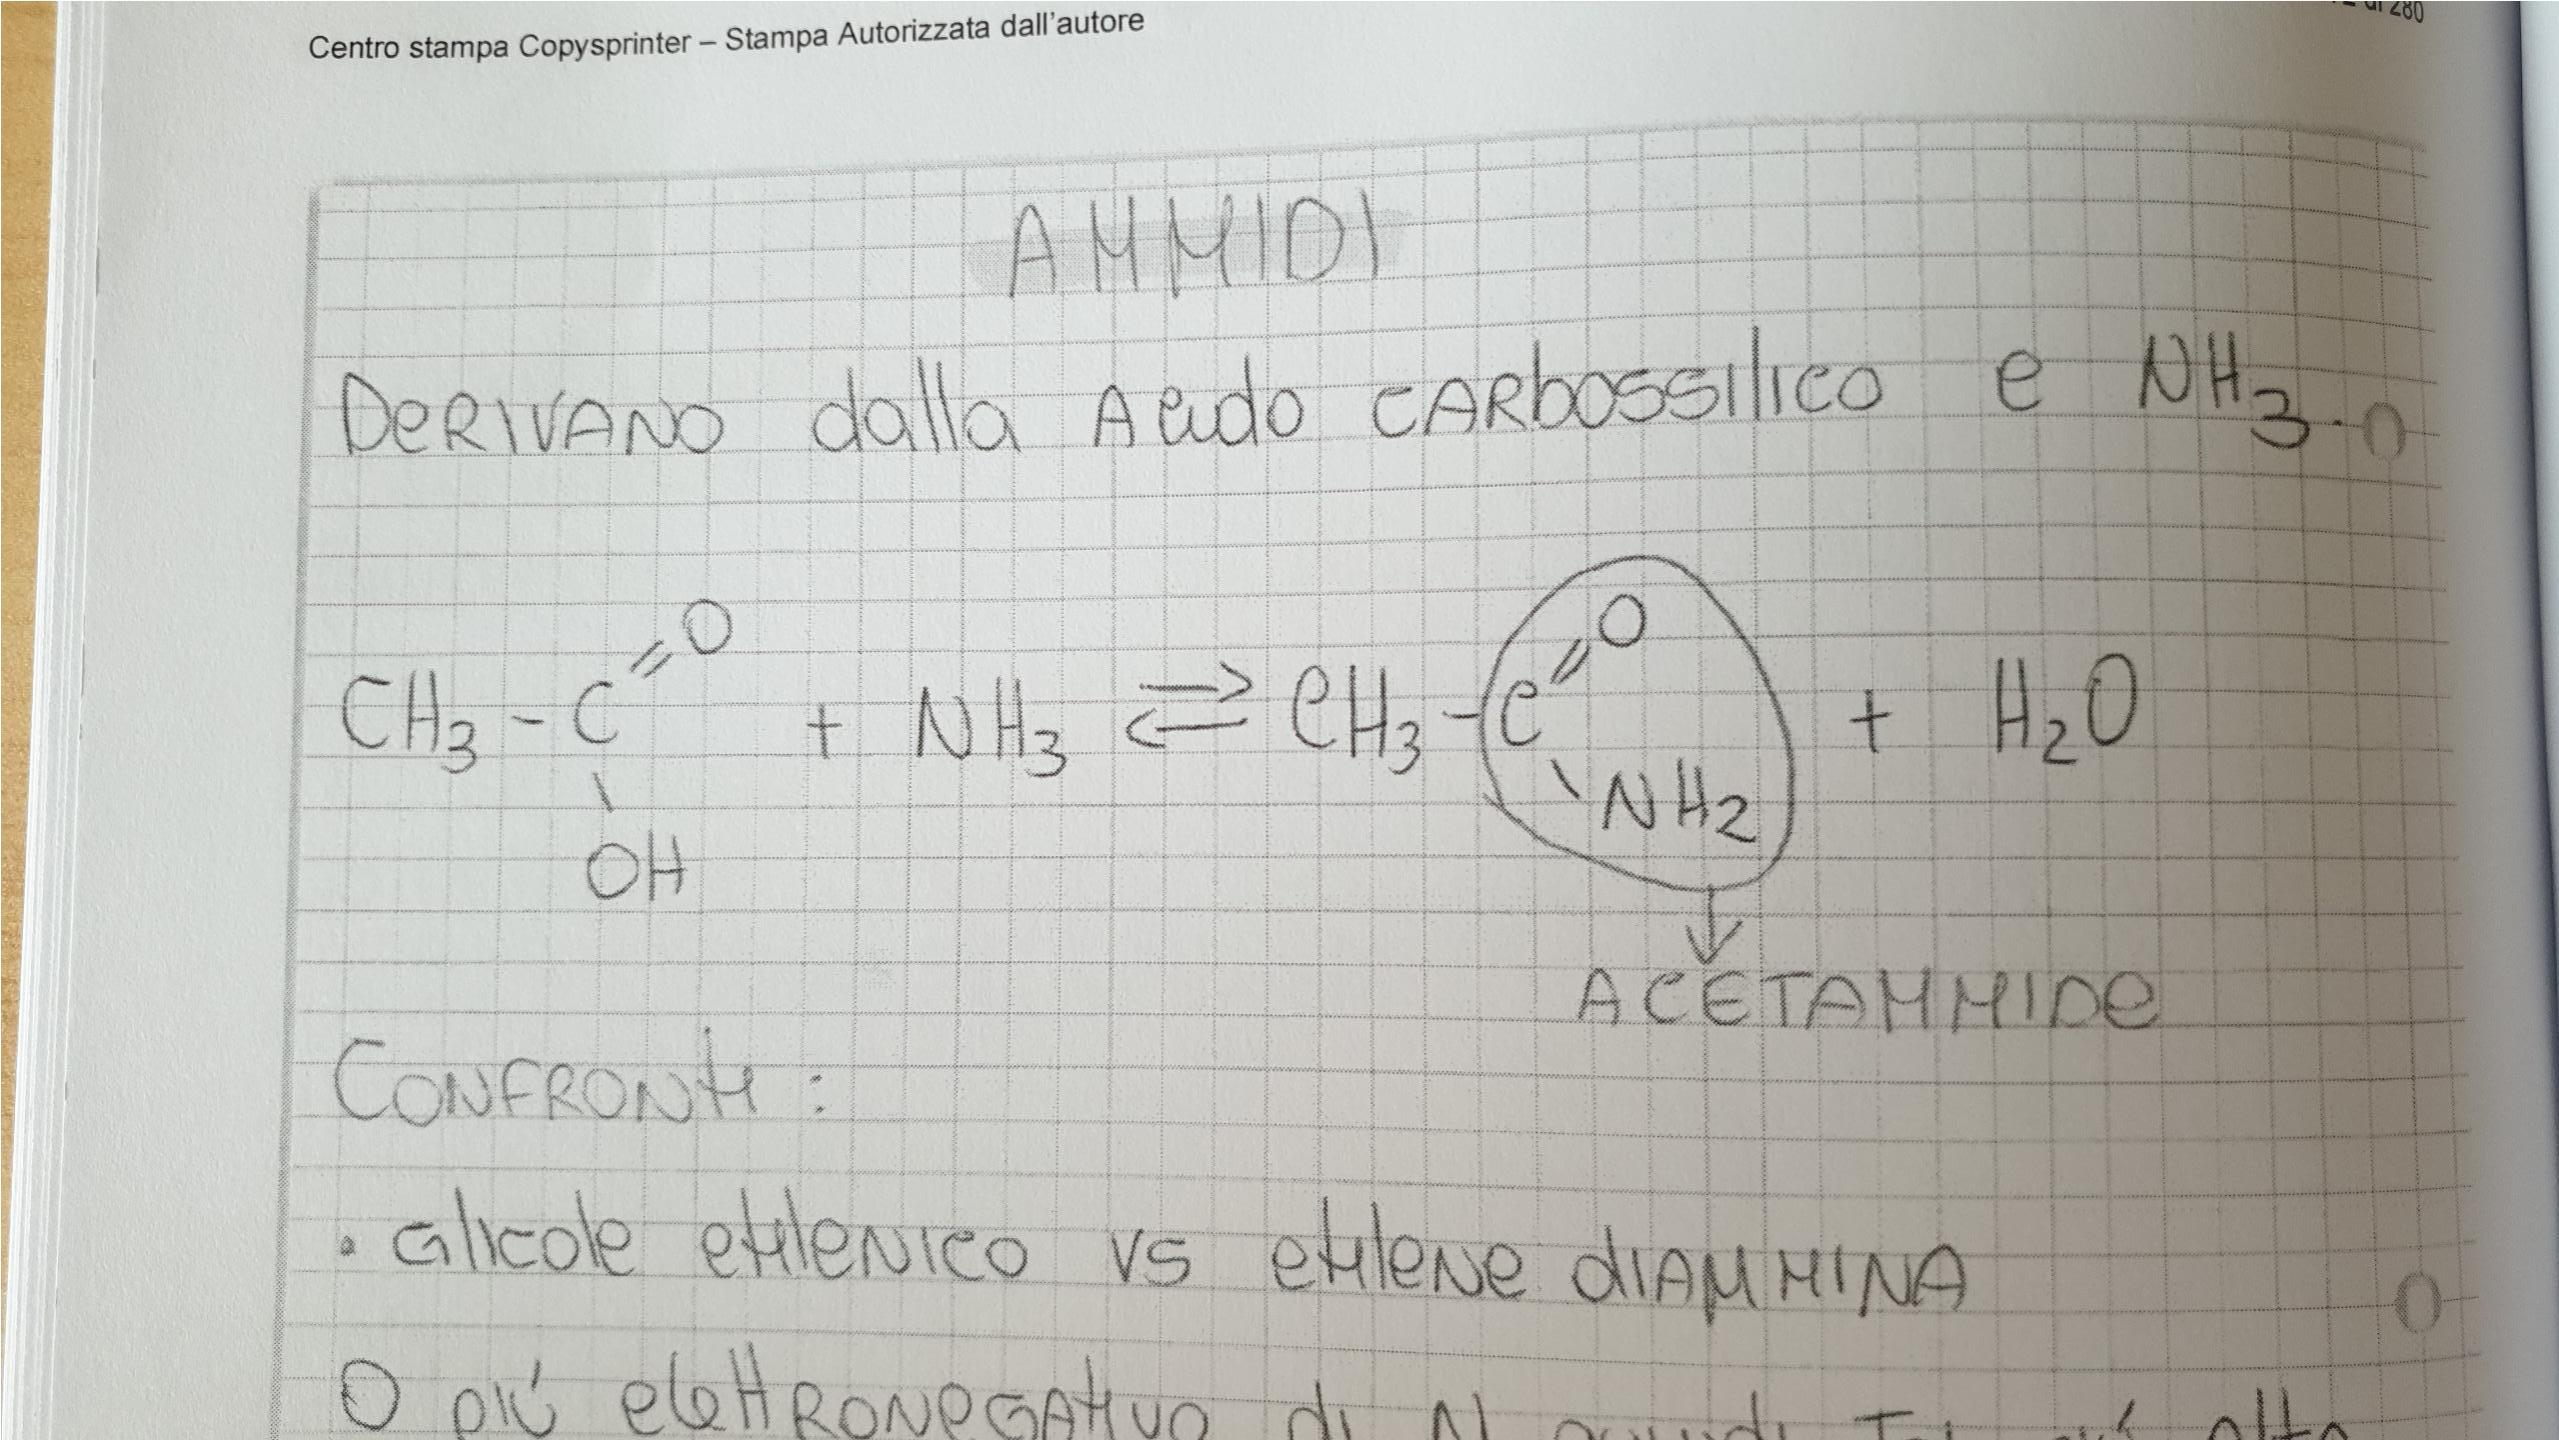 di 280
Centro stampa Copysprinter – Stampa Autorizzata dall'autore
AMMIDI
DERIVANO dalla Acido CARbossilico e NH3.
CH3 - C =O \ OH + NH3 ⇌ CH3 - C =O \ NH2 + H2O
ACETAMMIDE
CONFRONTI:
• Glicole etilenico vs etilene diammina
O più elettronegativo di N quindi più alta